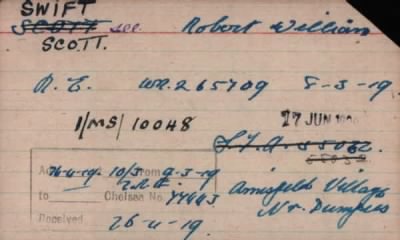 SWIFT
SCOTT see Robert William
SCOTT.
R.E. WR.265709 8-3-19
1/MS/10048 27 JUN
L.T.A. 55032.
55032
26-4-19. 10/3 From 9-3-19
to Chelsea No. 77443
Amisfield Village
Nr. Dumfries
Received 26-4-19.